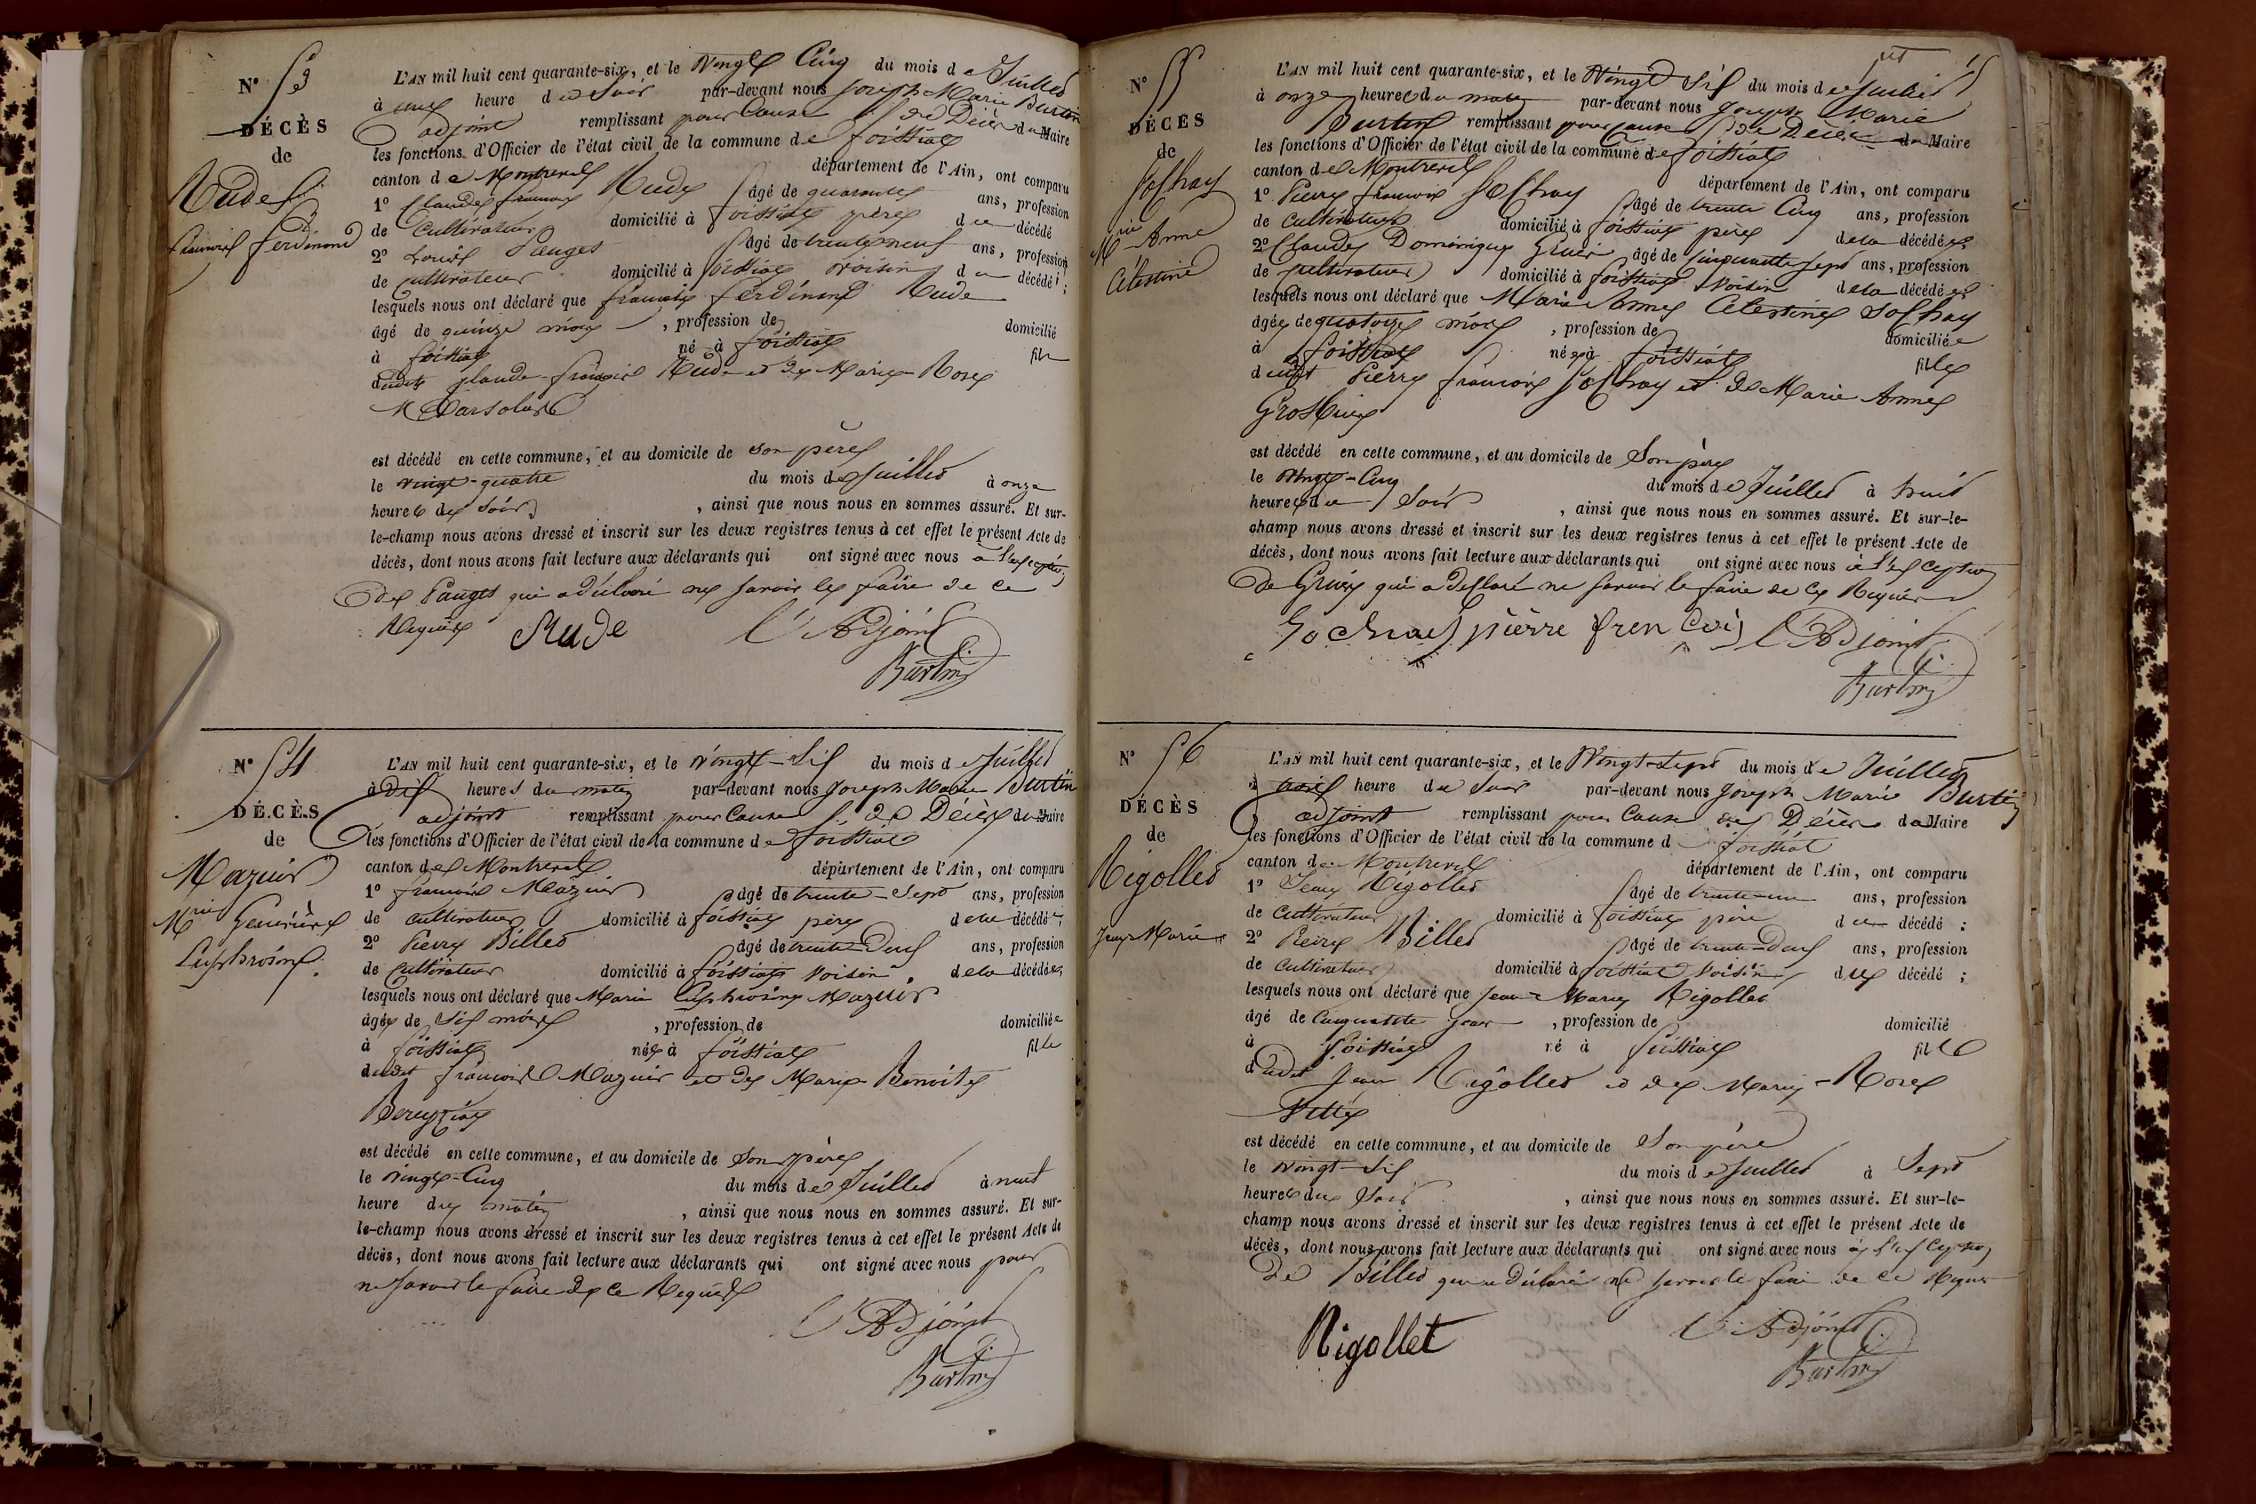 N° 53
DÉCÈS
de
Rude
François Ferdinand
L'AN mil huit cent quarante-six, et le Vingt Cinq du mois de Juillet
à une heure du Soir par-devant nous Joseph Marie Burtin
adjoint remplissant pour Cause de Décès du Maire
les fonctions d'Officier de l'état civil de la commune de foissiat
canton de Montrevel département de l'Ain, ont comparu
1° Claude françois Rude âgé de quarante ans, profession
de Cultivateur domicilié à foissiat père du décédé
2° Louis Pauget âgé de trente neuf ans, profession
de cultivateur domicilié à foissiat voisin du décédé ;
lesquels nous ont déclaré que françois ferdinand Rude
âgé de quinze mois , profession de domicilié
à foissiat né à foissiat fils
dudit Claude françois Rude et de Marie Rose
est décédé en cette commune, et au domicile de son père
le vingt-quatre du mois de Juillet à onze
heures du Soir , ainsi que nous nous en sommes assuré. Et sur-
le-champ nous avons dressé et inscrit sur les deux registres tenus à cet effet le présent Acte de
décès, dont nous avons fait lecture aux déclarants qui ont signé avec nous à l'exception
de Pauget qui a déclaré ne savoir le faire de ce
Requis Rude L'Adjoint
Burtin
N° 54
DÉCÈS
de
Mazuir
Mrie Geneviève
Euphrosine
L'AN mil huit cent quarante-six, et le Vingt-Six du mois de Juillet
à Dix heures du matin par-devant nous Joseph Marie Burtin
adjoint remplissant pour Cause de Décès du Maire
les fonctions d'Officier de l'état civil de la commune de foissiat
canton de Montrevel département de l'Ain, ont comparu
1° françois Mazuir âgé de trente-Sept ans, profession
de cultivateur domicilié à foissiat père de la décédée,
2° Pierre Billet âgé de trente-Deux ans, profession
de Cultivateur domicilié à foissiat voisin de la décédée,
lesquels nous ont déclaré que Marie Euphrosine Mazuir
âgée de Six mois , profession de domiciliée
à foissiat née à foissiat fille
dudit françois Mazuir et de Marie Benoite
est décédé en cette commune, et au domicile de Son père
le vingt-Cinq du mois de Juillet à
heure du matin , ainsi que nous nous en sommes assuré. Et sur-
le-champ nous avons dressé et inscrit sur les deux registres tenus à cet effet le présent Acte de
décès, dont nous avons fait lecture aux déclarants qui ont signé avec nous pour
ne savoir le faire de ce Requis
L'Adjoint
Burtin
N° 55
DÉCÈS
de
Sochay
Mrie Anne
Célestine
L'AN mil huit cent quarante-six, et le Vingt Six du mois de Juillet
à onze heures du matin par-devant nous Joseph Marie
Burtin remplissant pour cause de Décès du Maire
les fonctions d'Officier de l'état civil de la commune de foissiat
canton de Montrevel département de l'Ain, ont comparu
1° Pierre françois Sochay âgé de trente Cinq ans, profession
de Cultivateur domicilié à foissiat père de la décédée
2° Claude Dominique Gruer âgé de Cinquante Sept ans, profession
de cultivateur domicilié à foissiat Voisin de la décédée
lesquels nous ont déclaré que Marie Anne Célestine Sochay
âgée de quatorze mois , profession de domiciliée
à foissiat née à foissiat fille
dudit Pierre françois Sochay et de Marie Anne
est décédé en cette commune, et au domicile de Son père
le Vingt-Cinq du mois de Juillet à huit
heures du Soir , ainsi que nous nous en sommes assuré. Et sur-le-
champ nous avons dressé et inscrit sur les deux registres tenus à cet effet le présent Acte de
décès, dont nous avons fait lecture aux déclarants qui ont signé avec nous à l'exception
de qui a déclaré ne savoir le faire de ce Requis
pierre L'Adjoint
Burtin
N° 56
DÉCÈS
de
Rigollet
Jean Marie
L'AN mil huit cent quarante-six, et le Vingt-Sept du mois de Juillet
à heure du Soir par-devant nous Joseph Marie Burtin
adjoint remplissant pour Cause de Décès du Maire
les fonctions d'Officier de l'état civil de la commune d foissiat
canton de Montrevel département de l'Ain, ont comparu
1° Jean Rigollet âgé de trente-un ans, profession
de Cultivateur domicilié à foissiat père du décédé :
2° Pierre Billet âgé de trente-Deux ans, profession
de Cultivateur domicilié à foissiat Voisin du décédé ;
lesquels nous ont déclaré que Jean Marie Rigollet
âgé de Cinquante jours , profession de domicilié
à foissiat né à foissiat fils
dudit Jean Rigollet et de Marie-Rose
est décédé en cette commune, et au domicile de Son père
le Vingt-Six du mois de Juillet à Sept
heures du Soir , ainsi que nous nous en sommes assuré. Et sur-le-
champ nous avons dressé et inscrit sur les deux registres tenus à cet effet le présent Acte de
décès, dont nous avons fait lecture aux déclarants qui ont signé avec nous à l'exception
de Billet qui a déclaré ne savoir le faire de ce Requis
Rigollet L'Adjoint
Burtin